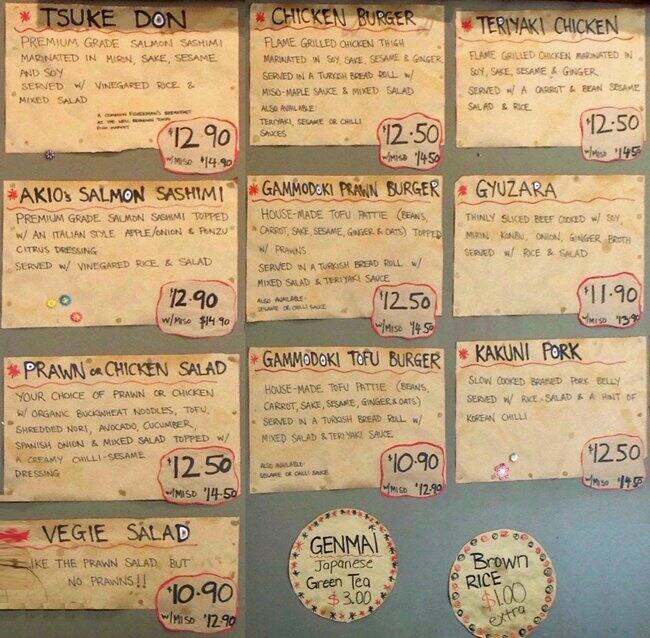 TSUKE DON
PREMIUM GRADE SALMON SASHIMI
MARINATED IN MIRIN, SAKE, SESAME
AND SOY
SERVED W/ VINEGARED RICE &
MIXED SALAD
A COMMON FISHERMAN'S BREAKFAST
AT THE WELL RENOWNED TOKYO
FISH MARKET
$12.90
W/MISO $14.90
CHICKEN BURGER
FLAME GRILLED CHICKEN THIGH
MARINATED IN SOY, SAKE, SESAME & GINGER
SERVED IN A TURKISH BREAD ROLL W/
MISO-MAPLE SAUCE & MIXED SALAD
ALSO AVAILABLE:
TERIYAKI, SESAME OR CHILLI
SAUCES
$12.50
W/MISO $14.50
TERIYAKI CHICKEN
FLAME GRILLED CHICKEN MARINATED IN
SOY, SAKE, SESAME & GINGER.
SERVED W/ A CARROT & BEAN SESAME
SALAD & RICE
$12.50
W/MISO $14.50
AKIO's SALMON SASHIMI
PREMIUM GRADE SALMON SASHIMI TOPPED
W/ AN ITALIAN STYLE APPLE/ONION & PONZU
CITRUS DRESSING
SERVED W/ VINEGARED RICE & SALAD
$12.90
W/MISO $14.90
GAMMODOKI PRAWN BURGER
HOUSE-MADE TOFU PATTIE (BEANS,
CARROT, SAKE, SESAME, GINGER & OATS) TOPPED
W/ PRAWNS
SERVED IN A TURKISH BREAD ROLL W/
MIXED SALAD & TERIYAKI SAUCE
ALSO AVAILABLE:
SESAME OR CHILLI SAUCE
$12.50
W/MISO $14.50
GYUZARA
THINLY SLICED BEEF COOKED W/ SOY,
MIRIN, KONBU, ONION, GINGER BROTH
SERVED W/ RICE & SALAD
$11.90
W/MISO $13.90
PRAWN OR CHICKEN SALAD
YOUR CHOICE OF PRAWN OR CHICKEN
W/ ORGANIC BUCKWHEAT NOODLES, TOFU,
SHREDDED NORI, AVOCADO, CUCUMBER,
SPANISH ONION & MIXED SALAD TOPPED W/
A CREAMY CHILLI-SESAME
DRESSING
$12.50
W/MISO $14.50
GAMMODOKI TOFU BURGER
HOUSE-MADE TOFU PATTIE (BEANS,
CARROT, SAKE, SESAME, GINGER & OATS)
SERVED IN A TURKISH BREAD ROLL W/
MIXED SALAD & TERIYAKI SAUCE
ALSO AVAILABLE:
SESAME OR CHILLI SAUCE
$10.90
W/MISO $12.90
KAKUNI PORK
SLOW COOKED BRAISED PORK BELLY
SERVED W/ RICE, SALAD & A HINT OF
KOREAN CHILLI
$12.50
W/MISO $14.50
VEGIE SALAD
IKE THE PRAWN SALAD BUT
NO PRAWNS!!
$10.90
W/MISO $12.90
GENMAI
Japanese
Green Tea
$3.00
Brown
RICE
$1.00
extra